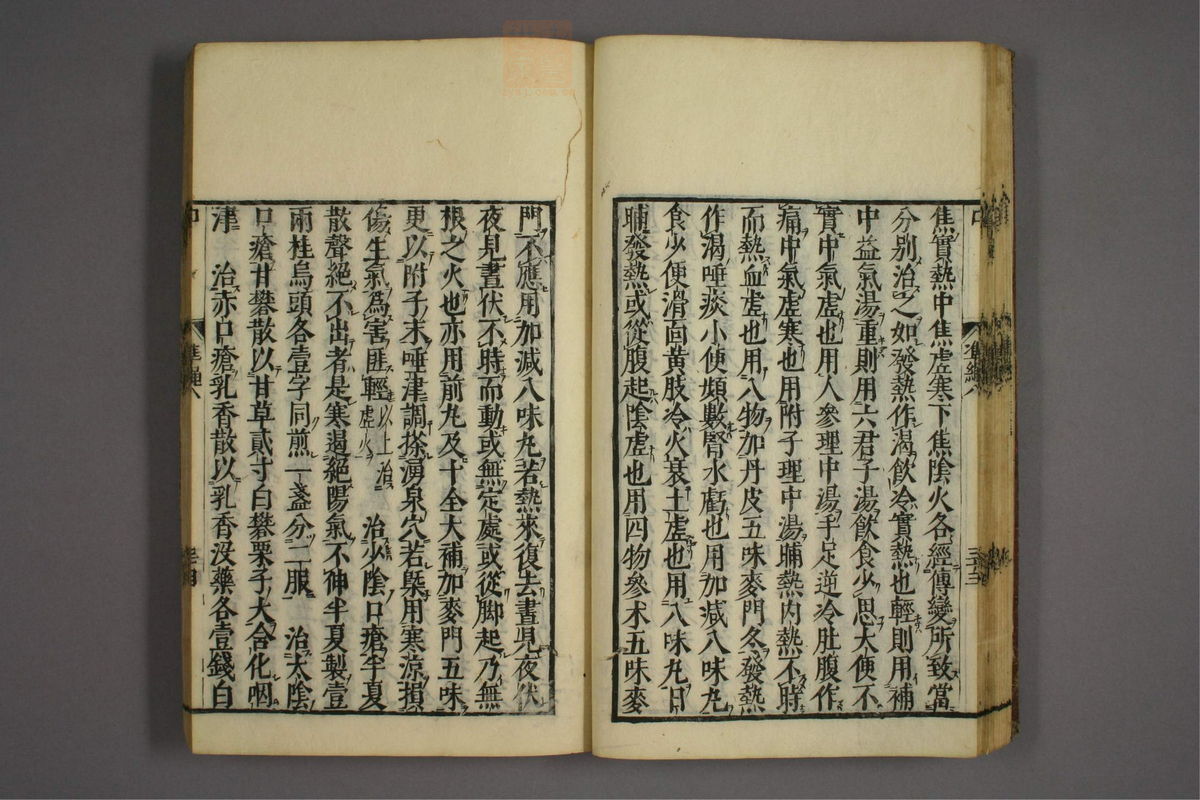 焦實熱中焦虛寒下焦陰火各經傳變所致當
分別治之如發熱作渴飲冷實熱也輕則用補
中益氣湯重則用六君子湯飲食少思大便不
實中氣虛也用人參理中湯手足逆冷肚腹作
痛中氣虛寒也用附子理中湯晡熱内熱不時
而熱血虛也用八物加丹皮五味麥門冬發熱
作渴唾痰小便頻數腎水虧也用加減八味丸
食少便滑面黃肢冷火衰土虛也用八味丸日
晡發熱或從腹起陰虛也用四物參术五味麥
門不應用加減八味丸若熱來復去晝見夜伏
夜見晝伏不時而動或無定處或從脚起乃無
根之火也亦用前丸及十全大補加麥門五味
更以附子末唾津調搽湧泉穴若槩用寒涼損
傷生氣爲害匪輕以上治虛火　治少陰口瘡半夏
散聲絕不出者是寒遏絕陽氣不伸半夏製壹
兩桂烏頭各壹字同煎一盞分二服　治太陰
口瘡甘礬散以甘草貳寸白礬栗子大含化咽
津　治赤口瘡乳香散以乳香沒藥各壹錢白